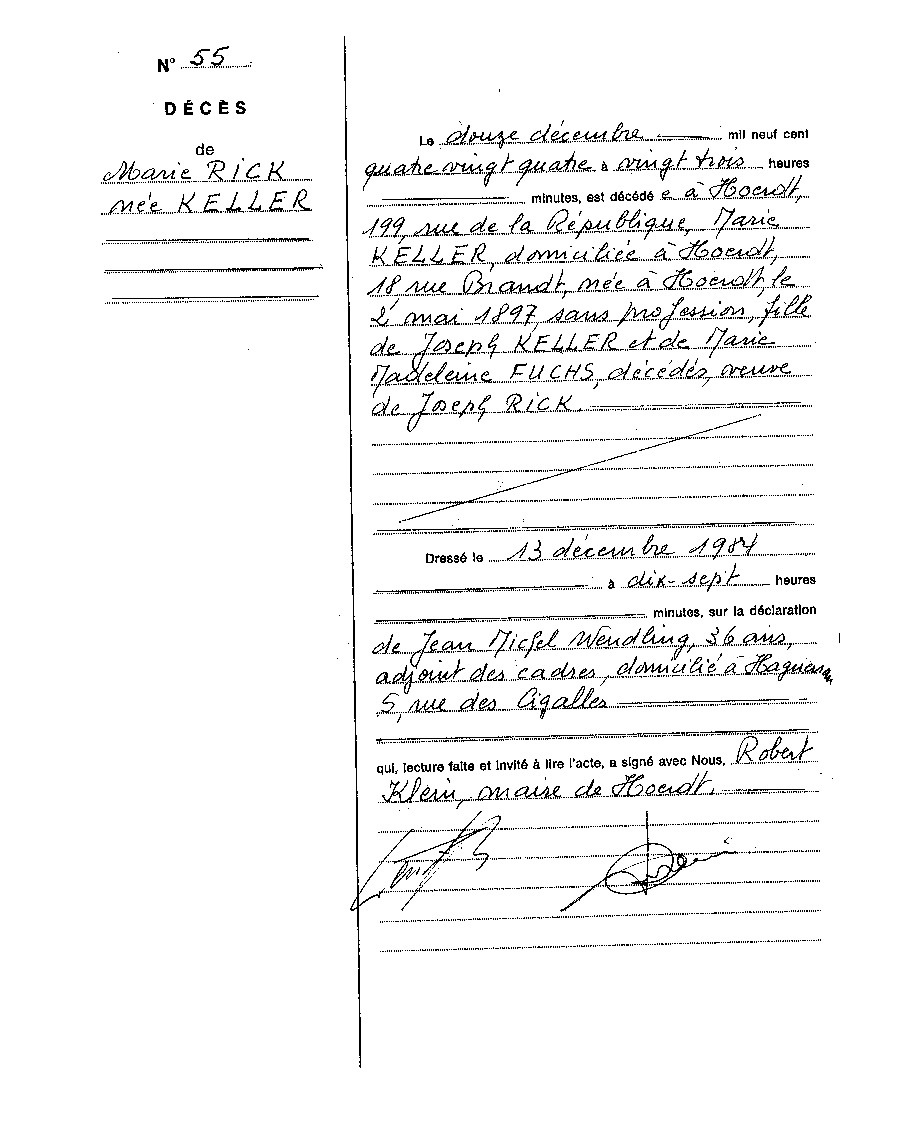 N° 55
DÉCÈS
de
Marie RICK
née KELLER
Le douze décembre mil neuf cent
quatre vingt quatre à vingt trois heures
minutes, est décédé e à Hoerdt,
199, rue de la République, Marie
KELLER, domiciliée à Hoerdt,
18 rue Brandt, née à Hoerdt, le
2 mai 1897, sans profession, fille
de Joseph KELLER et de Marie
Madeleine FUCHS, décédés, veuve
de Joseph RICK.
Dressé le 13 décembre 1984
à dix-sept heures
minutes, sur la déclaration
de Jean Michel Wendling, 36 ans,
adjoint des cadres, domicilié à Haguenau,
5, rue des Cigalles
qui, lecture faite et invité à lire l'acte, a signé avec Nous, Robert
Klein, maire de Hoerdt.